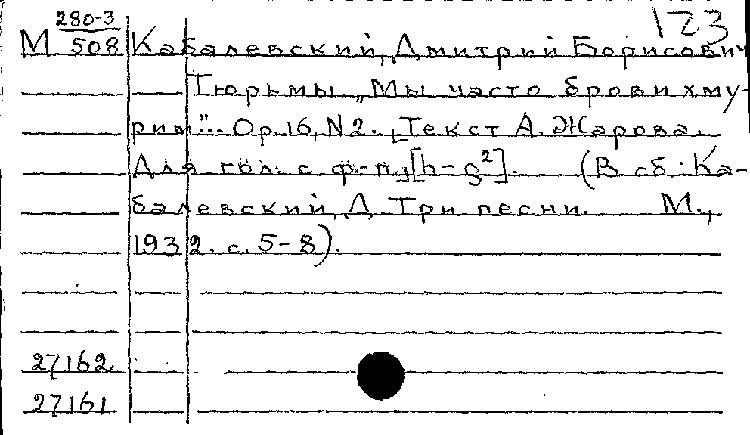 123
280-3
М 508 Кабалевский, Дмитрий Борисович
Тюрьмы „Мы часто брови хму-
рим". Ор.16, N2. [Текст А. Жарова.
Для гол. с ф-п.,] [h-g²]. (В сб.: Ка-
балевский, Д. Три песни. М.,
1932. с. 5-8).
27162
27161